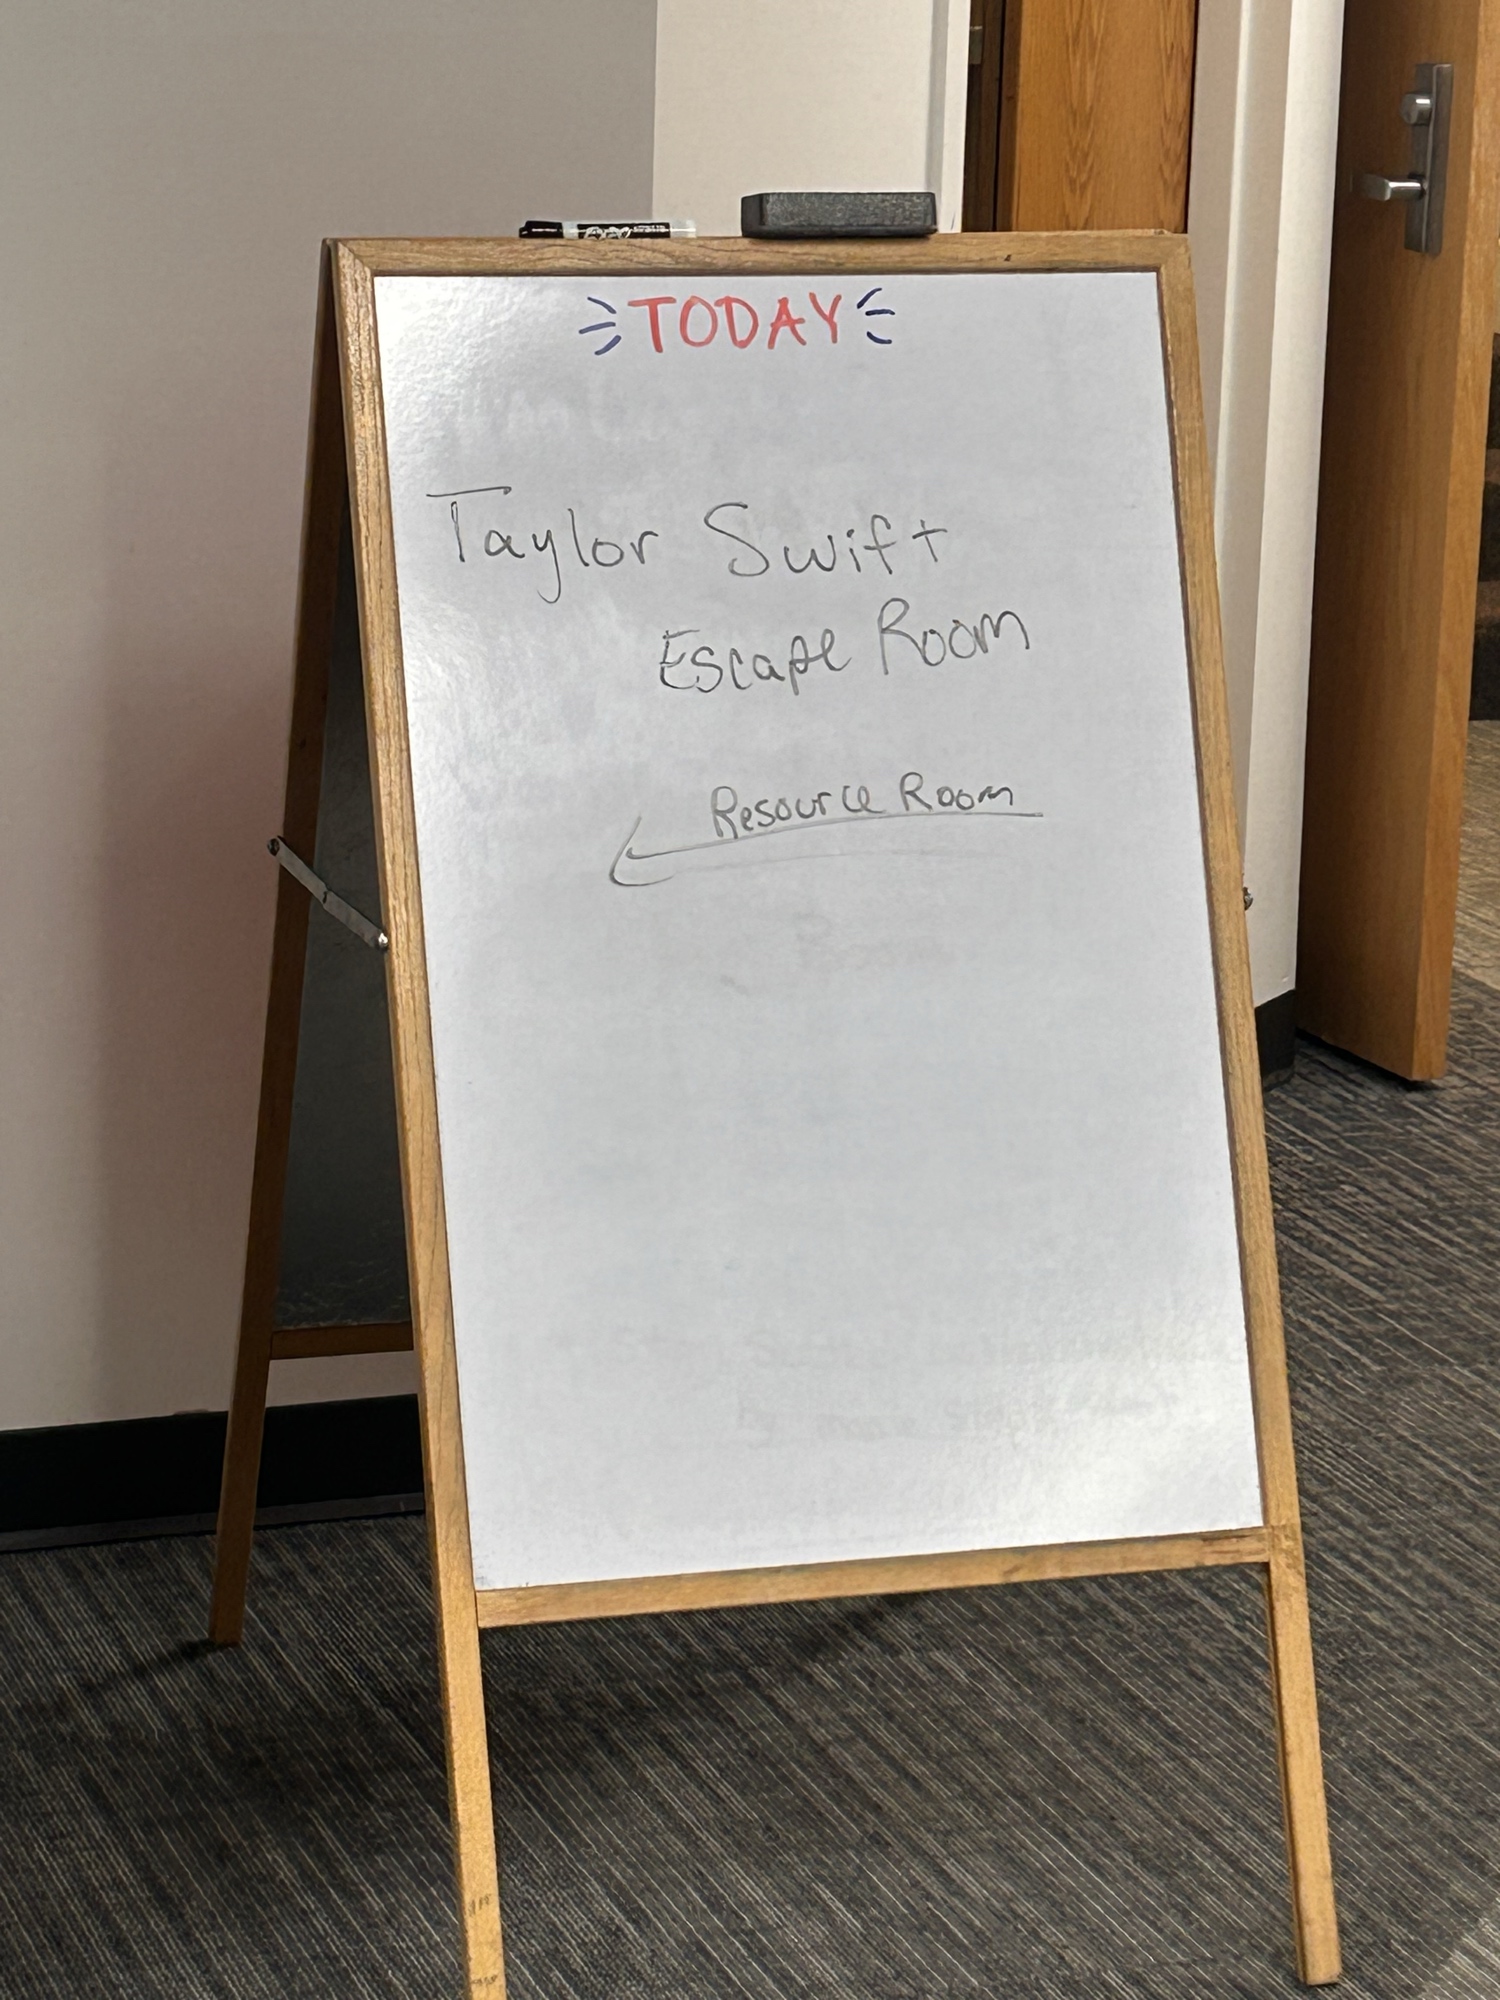 TODAY
Taylor Swift
Escape Room
Resource Room